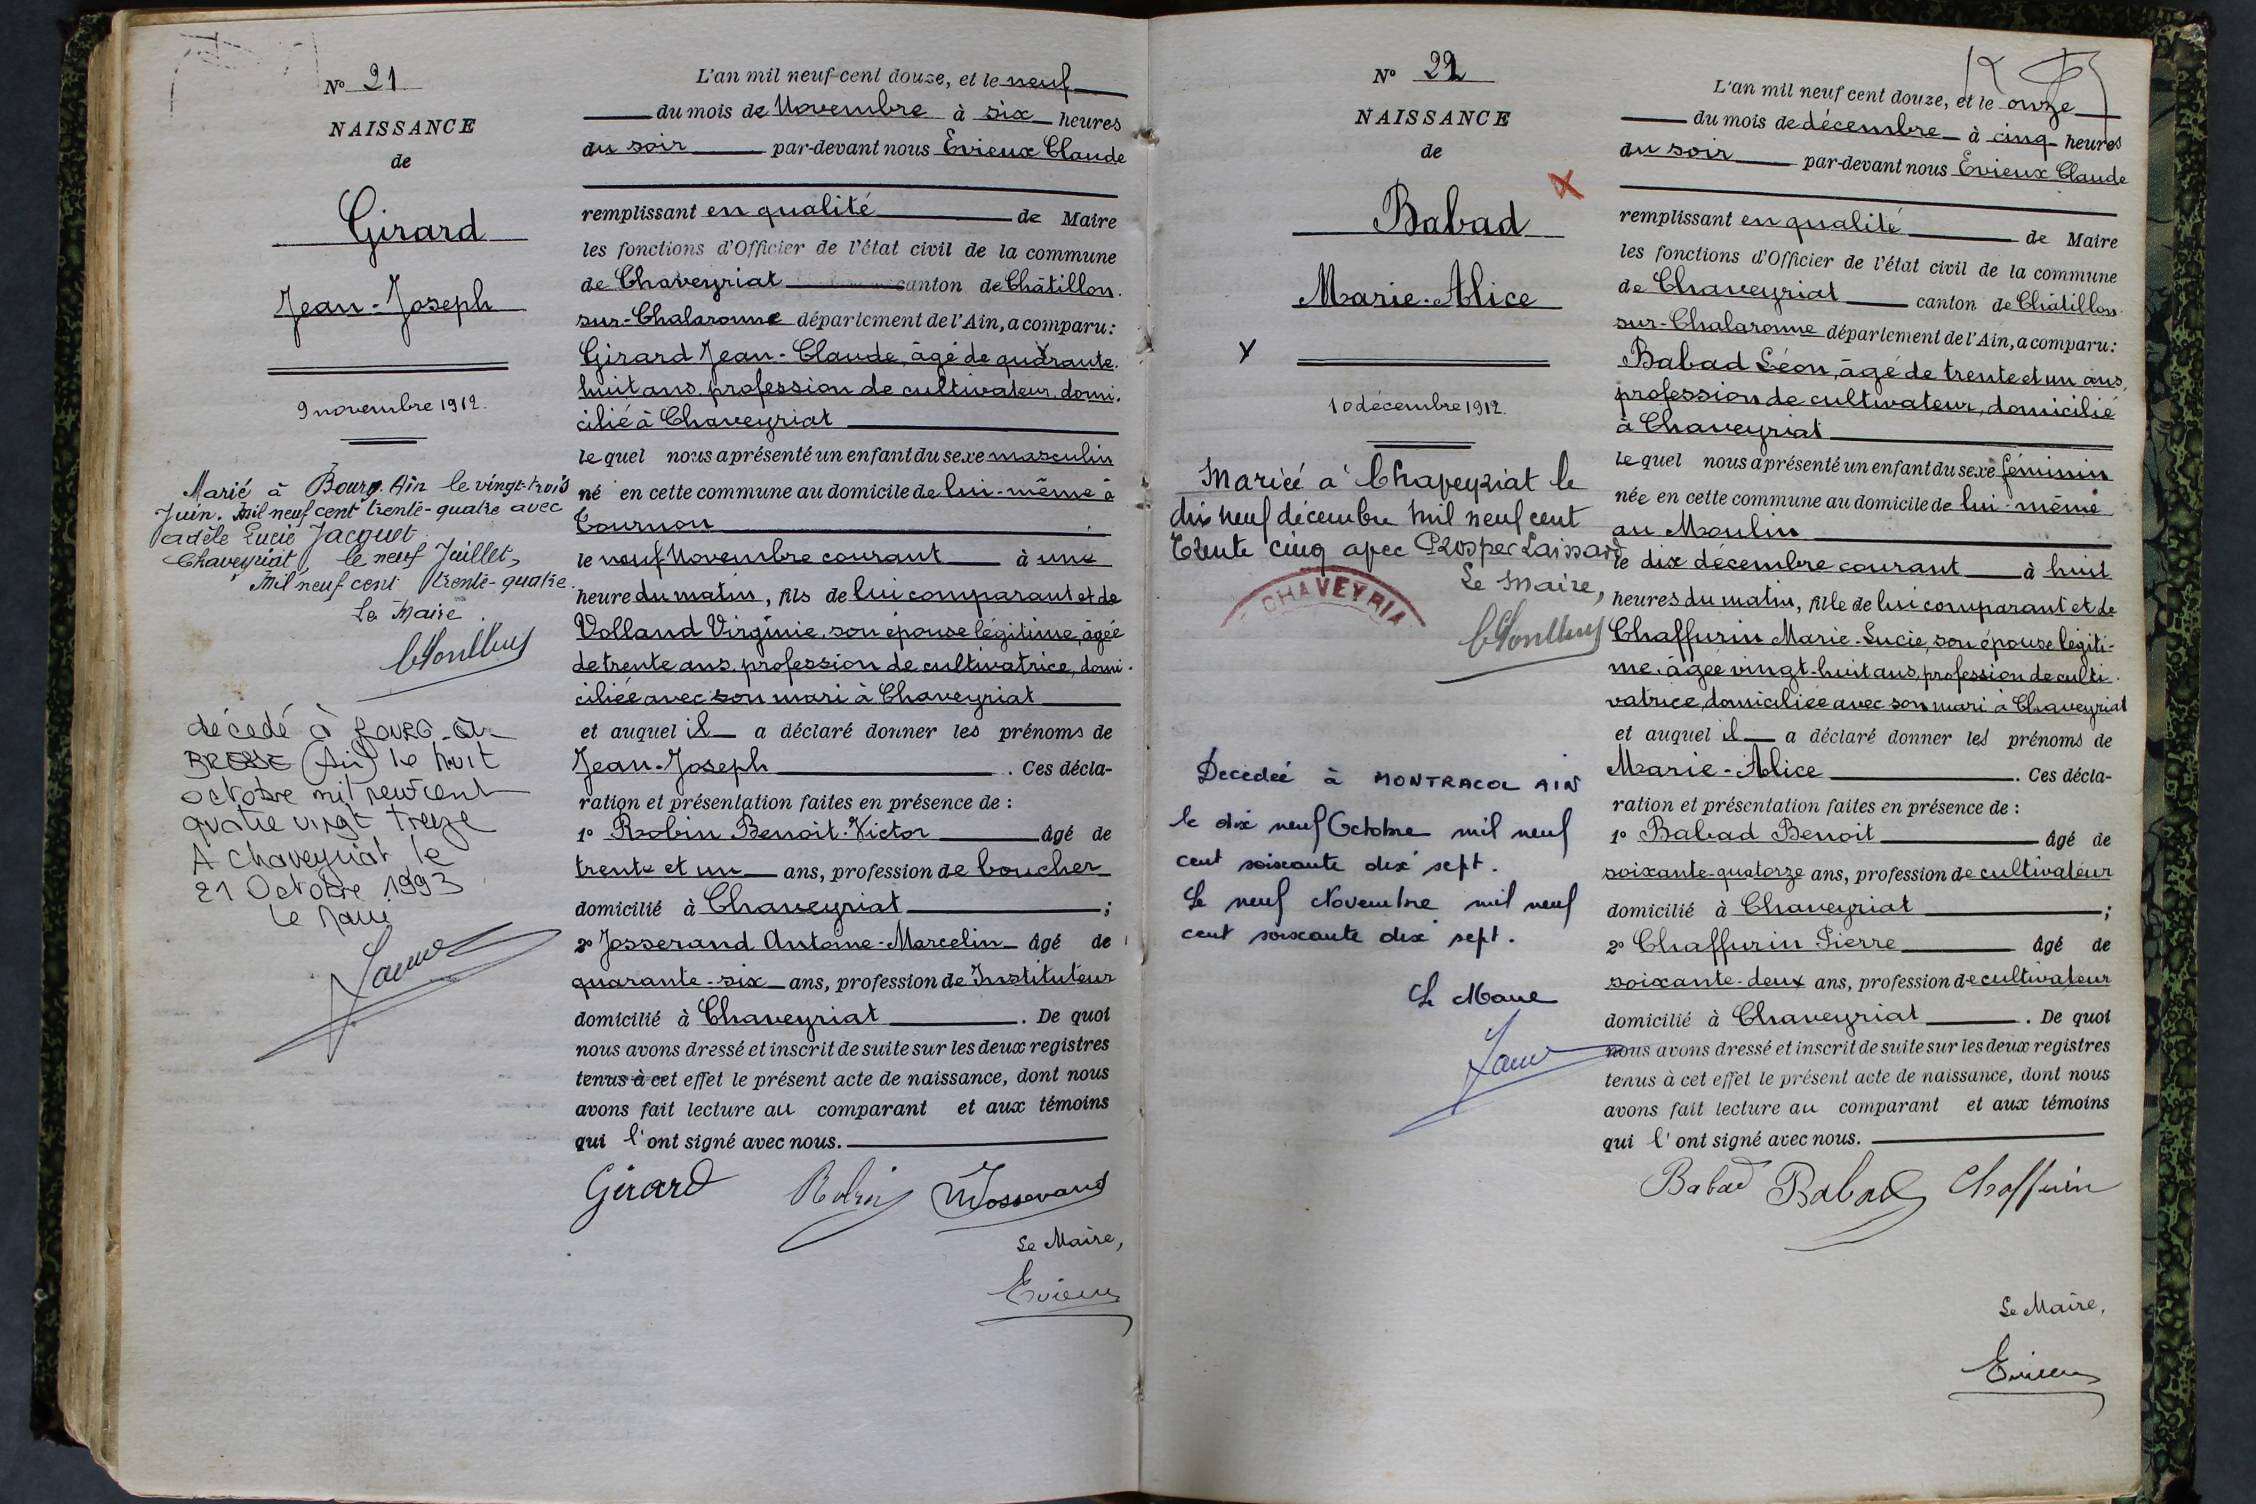 N° 21
NAISSANCE
de
Girard
Jean-Joseph
9 novembre 1912.
Marié à Bourg. Ain le vingt-trois
Juin. Mil neuf cent trente-quatre avec
Adèle Lucie Jacquet
Chaveyriat, le neuf Juillet,
Mil neuf cent trente-quatre.
Le Maire
décédé à BOURG-en-
BRESSE (Ain) le huit
octobre mil neuf cent
quatre vingt treize
A Chaveyriat le
21 Octobre 1993
Le Maire
L'an mil neuf cent douze, et le neuf
du mois de Novembre à six heures
du soir par-devant nous Evieux Claude
remplissant en qualité de Maire
les fonctions d'Officier de l'état civil de la commune
de Chaveyriat canton de Châtillon.
sur-Chalaronne département de l'Ain, a comparu:
Girard Jean-Claude, âgé de quarante.
huit ans, profession de cultivateur, domi.
cilié à Chaveyriat
lequel nous a présenté un enfant du sexe masculin
né en cette commune au domicile de lui-même à
Tournon
le neuf Novembre courant à une
heure du matin, fils de lui comparant et de
Volland Virginie, son épouse légitime, âgée
de trente ans, profession de cultivatrice, domi.
ciliée avec son mari à Chaveyriat
et auquel il a déclaré donner les prénoms de
Jean-Joseph. Ces décla-
ration et présentation faites en présence de :
1° Robin Benoit-Victor âgé de
trente et un ans, profession de boucher
domicilié à Chaveyriat ;
2° Josserand Antoine-Marcelin âgé de
quarante-six ans, profession de Instituteur
domicilié à Chaveyriat. De quoi
nous avons dressé et inscrit de suite sur les deux registres
tenus à cet effet le présent acte de naissance, dont nous
avons fait lecture au comparant et aux témoins
qui l'ont signé avec nous.
Girard Robin Josserand
Le Maire,
Evieux
N° 22
NAISSANCE
de
Babad
Marie-Alice
10 décembre 1912.
Mariée à Chaveyriat le
dix neuf décembre mil neuf cent
trente cinq avec Prosper Laissard
Le Maire,
CHAVEYRIA
Decedée à MONTRACOL AIN
le dix neuf Octobre mil neuf
cent soixante dix sept.
Le neuf Novembre mil neuf
cent soixante dix sept.
Le Maire
L'an mil neuf cent douze, et le onze
du mois de décembre à cinq heures
du soir par-devant nous Evieux Claude
remplissant en qualité de Maire
les fonctions d'Officier de l'état civil de la commune
de Chaveyriat canton de Châtillon
sur-Chalaronne département de l'Ain, a comparu:
Babad Léon, âgé de trente et un ans,
profession de cultivateur, domicilié
à Chaveyriat
lequel nous a présenté un enfant du sexe féminin
née en cette commune au domicile de lui-même
au Moulin
le dix décembre courant à huit
heures du matin, fille de lui comparant et de
Chaffurin Marie-Lucie, son épouse légiti-
me, âgée vingt-huit ans, profession de culti.
vatrice, domiciliée avec son mari à Chaveyriat
et auquel il a déclaré donner les prénoms de
Marie-Alice. Ces décla-
ration et présentation faites en présence de :
1° Babad Benoit âgé de
soixante-quatorze ans, profession de cultivateur
domicilié à Chaveyriat ;
2° Chaffurin Pierre âgé de
soixante-deux ans, profession de cultivateur
domicilié à Chaveyriat. De quoi
nous avons dressé et inscrit de suite sur les deux registres
tenus à cet effet le présent acte de naissance, dont nous
avons fait lecture au comparant et aux témoins
qui l'ont signé avec nous.
Babad Babad Chaffurin
Le Maire,
Evieux